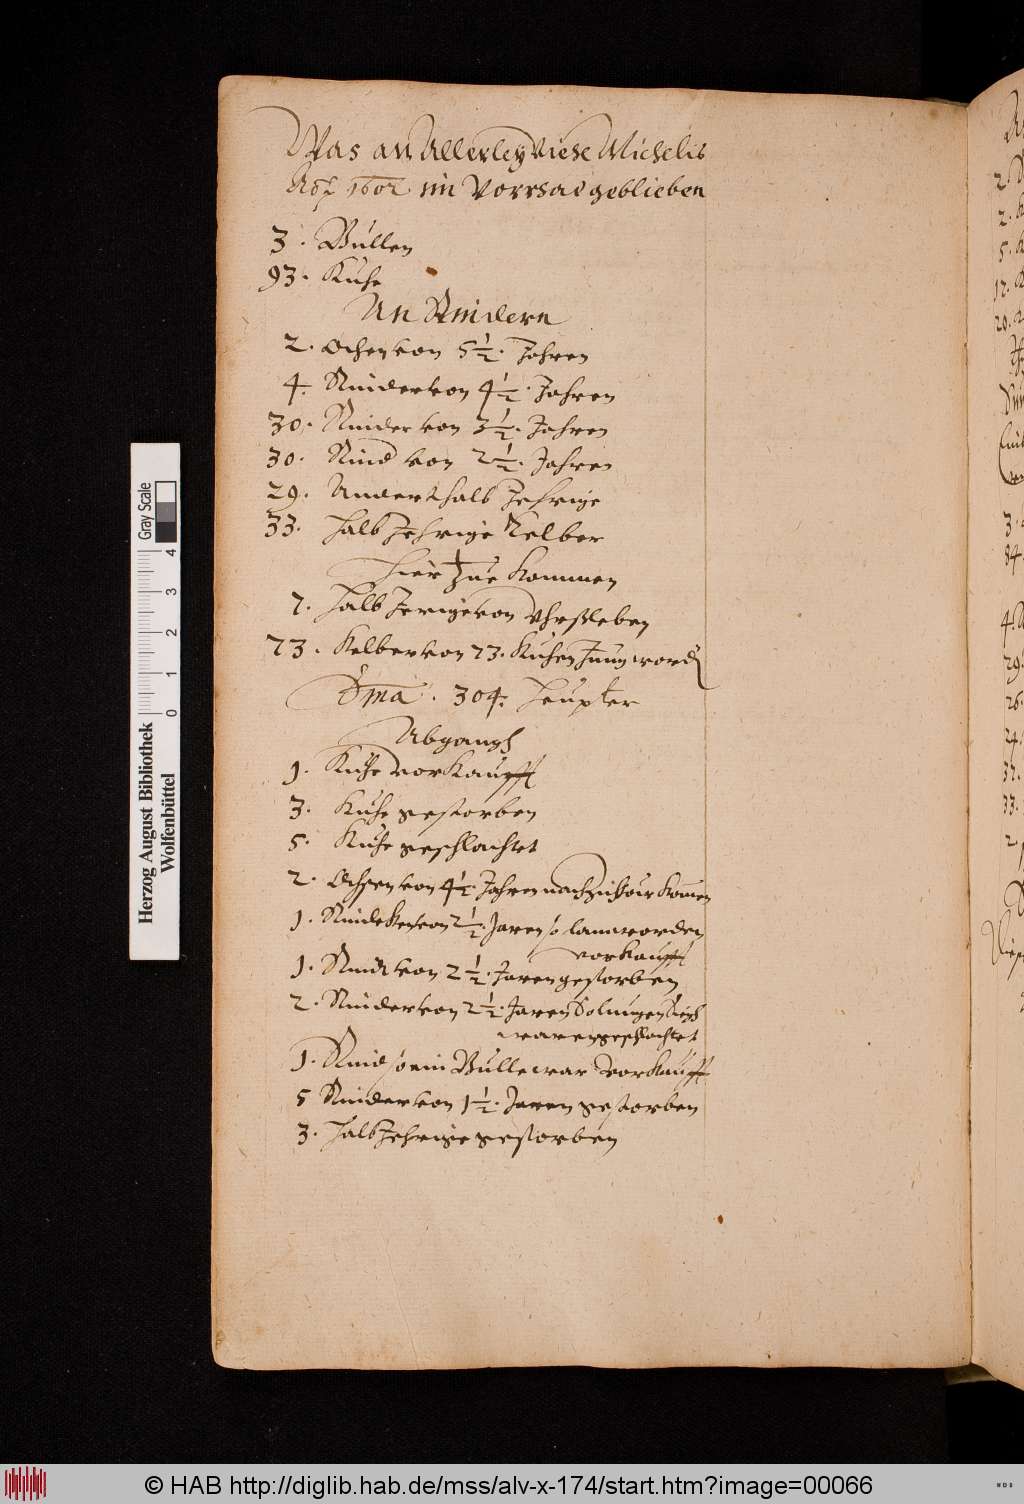 Was an Allerley Viehe Michelis
A&#7506; 1602 im Vorrhad geblieben
3. Bullen
93. Kuhe
An Rindern
2. Ochen von 5½. Jahren
4. Rinder von 4½. Jahren
30. Rinder von 3½. Jahren
30. Rind von 2½. Jahren
29. Anderthalb Jehrige
33. halb Jehrige Kelber
hier zue kommen
7. halb Jerige von Vhrsleben
73. Kelber von 73. Kuhen Jung word
Sma. 304. Heupter
Abgangh
1. Kuhe vorkaufft
3. Kuhe gestorben
5. Kuhe geschlachtet
2. Ochsen von 4½. Jahren nach kommen
1. Rindeken von 2½. Jaren so lam worden
vorkaufft
1. Rindt von 2½. Jaren gestorben
2. Rinder von 2½. Jaren so lungen
waren geschlachtet
1. Rind so ein Bulle war vorkaufft
5 Rinder von 1½. Jaren gestorben
3. halb Jehrige gestorben
Herzog August Bibliothek
Wolfenbüttel
Gray Scale
0 1 2 3 4
© HAB http://diglib.hab.de/mss/alv-x-174/start.htm?image=00066